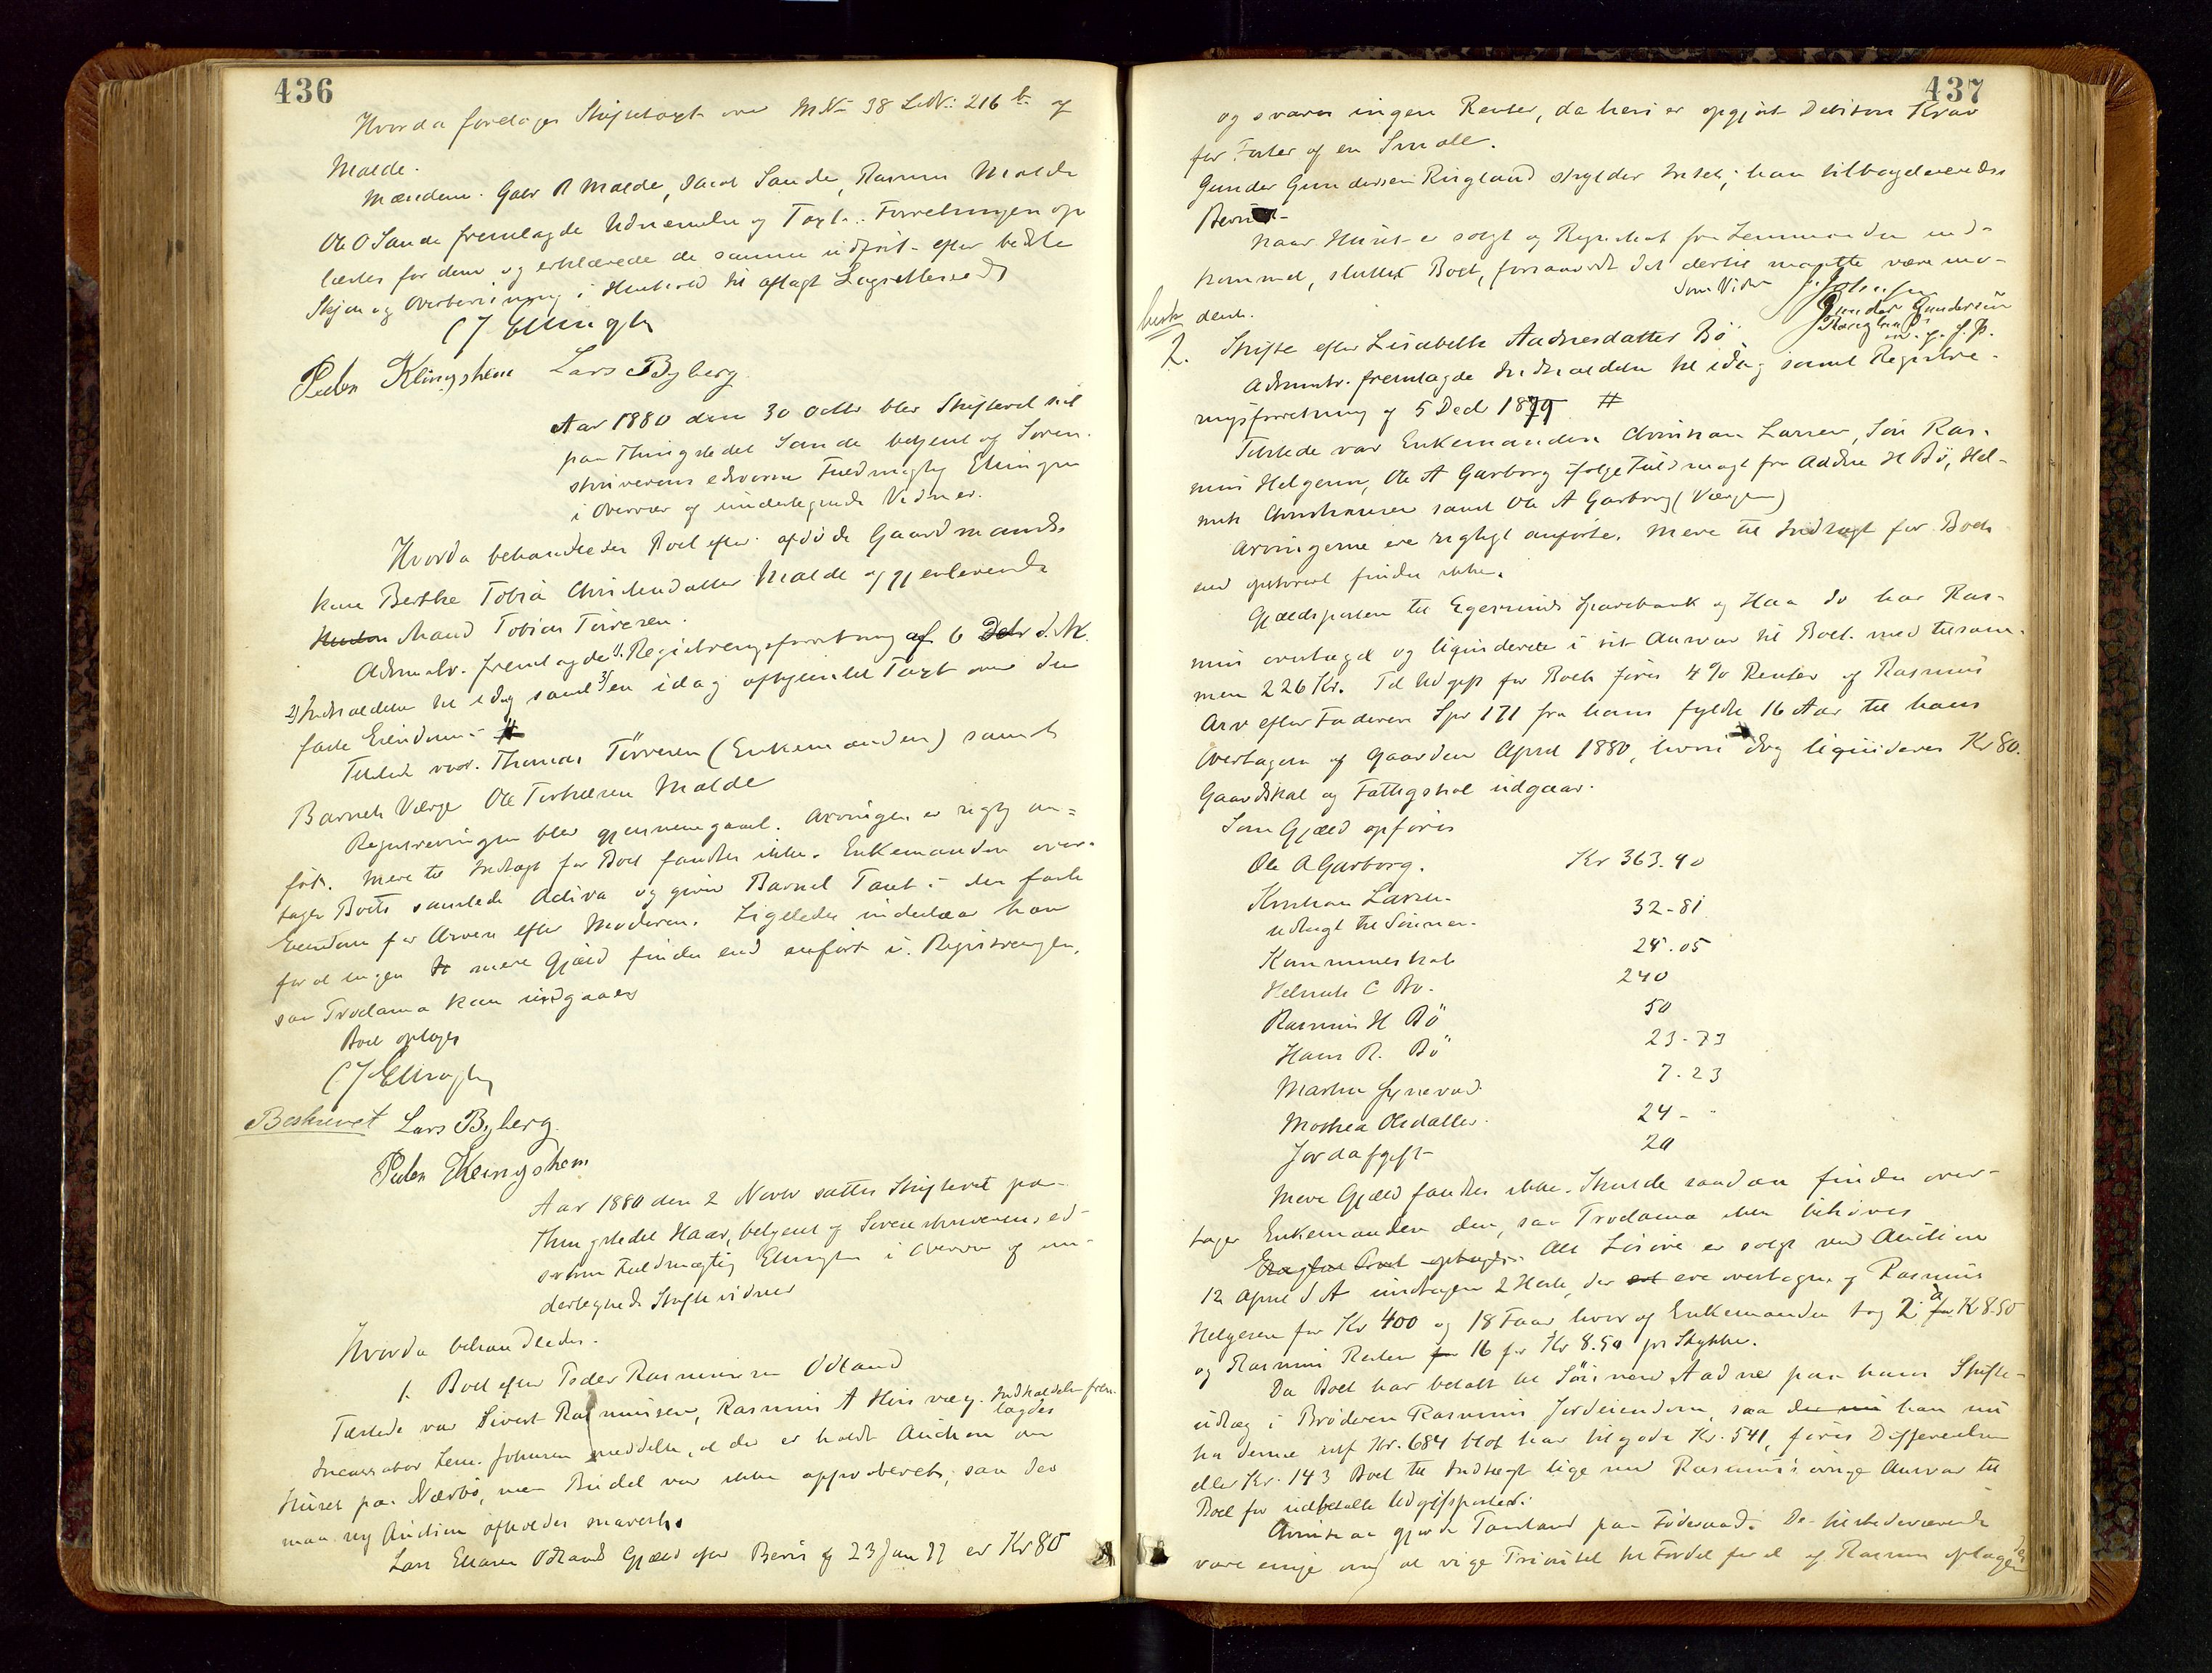 436
Hvorda foretoges Skiftetaxt over M No 38 L No: 216 b af
Malde.
Mændene. Gabr R Malde, Jacob Sande, Rasmus Malde
Ole O Sande fremlagde Udnævnelse og Taxt.. Forretningen op
læstes for dem og erklærede de samme udført efter bedste
Skjøn og Overbevisning i Henhold til aflagt Lagrettesed
C J Ellingsen
Peder Klingshem Lars Byberg
Aar 1880 den 30 Octbr blev Skifteret sat
paa Thingstedet Sande betjent af Soren-
skriverens edsvorne Fuldmægtig Ellingsen
i Overvær af undertegnede Vidner.
Hvorda behandledes Boet efter afdøde Gaardmands
kone Berthe Tobia Christensdatter Malde og gjenlevende
Mand Tobias Tørresen.
Admstr. fremlagde 1) Registreringsforretning af 6 d. M.
2) Indkaldelse til idag samt 3) en idag afhjemlet Taxt over den
faste Eiendom. #
Tilstede var. Thomas Tørresen (Enkemanden) samt
Barnets Værge Ole Torkelsen Malde
Registreringen blev gjennemgaaet. Arvingen er rigtig an-
ført. Mere til Indtægt for Boet fandtes ikke. Enkemanden over-
tager Boets samtlede Activa og giver Barnet Pant i den faste
Eiendom for Arven efter Moderen. Ligeledes indestaar han
for at ingen mere Gjæld findes end anført i Registreringen,
saa Proclama kan undgaaes
Boet optages
C J Ellingsen
Beskrevet Lars Byberg
Peder Klingshem
Aar 1880 den 2 Novbr sattes Skifteret paa
Thingstedet Haar, betjent af Sorenskriverens ed-
svorne Fuldmægtig Ellingsen i Overvær af un-
dertegnede Skiftevidner
Hvorda behandledes.
1. Boet efter Peder Rasmussen Odland
Tilstede var Sivert Rasmussen, Rasmus A Hens værge. Indkaldelse frem-
lagdes
Incassator Lens. Johnsen meddelte, at der er holdt Auction over
Huset paa Nærbø, men Budet var ikke approberet, saa der
maa ny Auction afholdes snarest.
Lars Odland Gjæld efter Bevis af 23 Jan 77 er Kr 80
437
og svares ingen Renter, da heri er opgjort Debitors Krav
for Foster af en Smale.
Gunder Gundersen Ringland skylder Intet; han tilbageleverede
Beviset-
Naar Huset er solgt og Regnskab fra Lensmanden ind-
kommet, sluttes Boet, forsaavidt det dertil maatte være mo-
dent. Som Vidner
Johnsen
Gunder Gundersen
Ringland
m. f. P.
besk
2. Skifte efter Lisabeth Aadnesdatter Bø
Admstr. fremlagde Indkaldelse til idag samt Registre-
ringsforretning af 5 Decb 1879 #
Tilstede var Enkemanden Christian Larsen, Søn Ras-
mus Helgesen, Ole A Garborg ifølge Fuldmagt fra Aadne H Bø, Hel-
mik Christiansen samt Ole A Garborg (Værge)
Arvingerne ere rigtigt anførte. Mere til Indtægt for Boet
end opskrevet findes ikke.
Gjældsposten til Egersunds Sparebank og Haa do har Ras-
mus overtaget og liquiderede i sit Ansvar til Boet med tilsam-
men 226 Kr. Til Udgift for Boet føres 4 % Renter af Rasmus
Arv efter Faderen Spr 171 fra hans fyldte 16 Aar til hans
Overtagen af Gaarden April 1880, hvori dog liquideres Kr 80.
Gaardskat og Fattigskat udgaar.
Som Gjæld opføres
Ole A Garborg. Kr 363.90
Kristian Larsen
udlagt til Sønnen. 32-81
Kommuneskat 28.05
Helmik C Bø. 240
Rasmus H Bø 50
Hans R. Bø 23-73
Marthe Synevad 7.23
Mothea Olsdatter. 24-
Jordafgift 20
Mere Gjæld fandtes ikke. Skulde saadan findes over-
tager Enkemanden den, saa Proclama ikke behøves
Alt Løsøre er solgt ved Auction
12 April d A undtagen 2 Heste, der ere overtagne af Rasmus
Helgesen for Kr 400 og 18 Faar hvoraf Enkemanden tog 2 a Kr 8.50
og Rasmus Resten 16 for Kr 8.50 pr Stykke.
Da Boet har betalt til Sønnen Aadne paa hans Skifte-
udlæg i Broderen Rasmus Jordeiendom, saa han nu
hos denne istf Kr. 684 blot har tilgode Kr. 541, føres Differentsen
eller Kr. 143 Boet til Indtægt lige med Rasmus's øvrige Ansvar til
Boet for udbetalte Udgiftsposter.
Christian gjorde Paastand paa Føderaad. De tilstedeværende
vare enige om at vige Prioritet til Fordel for et af Rasmus optagendes